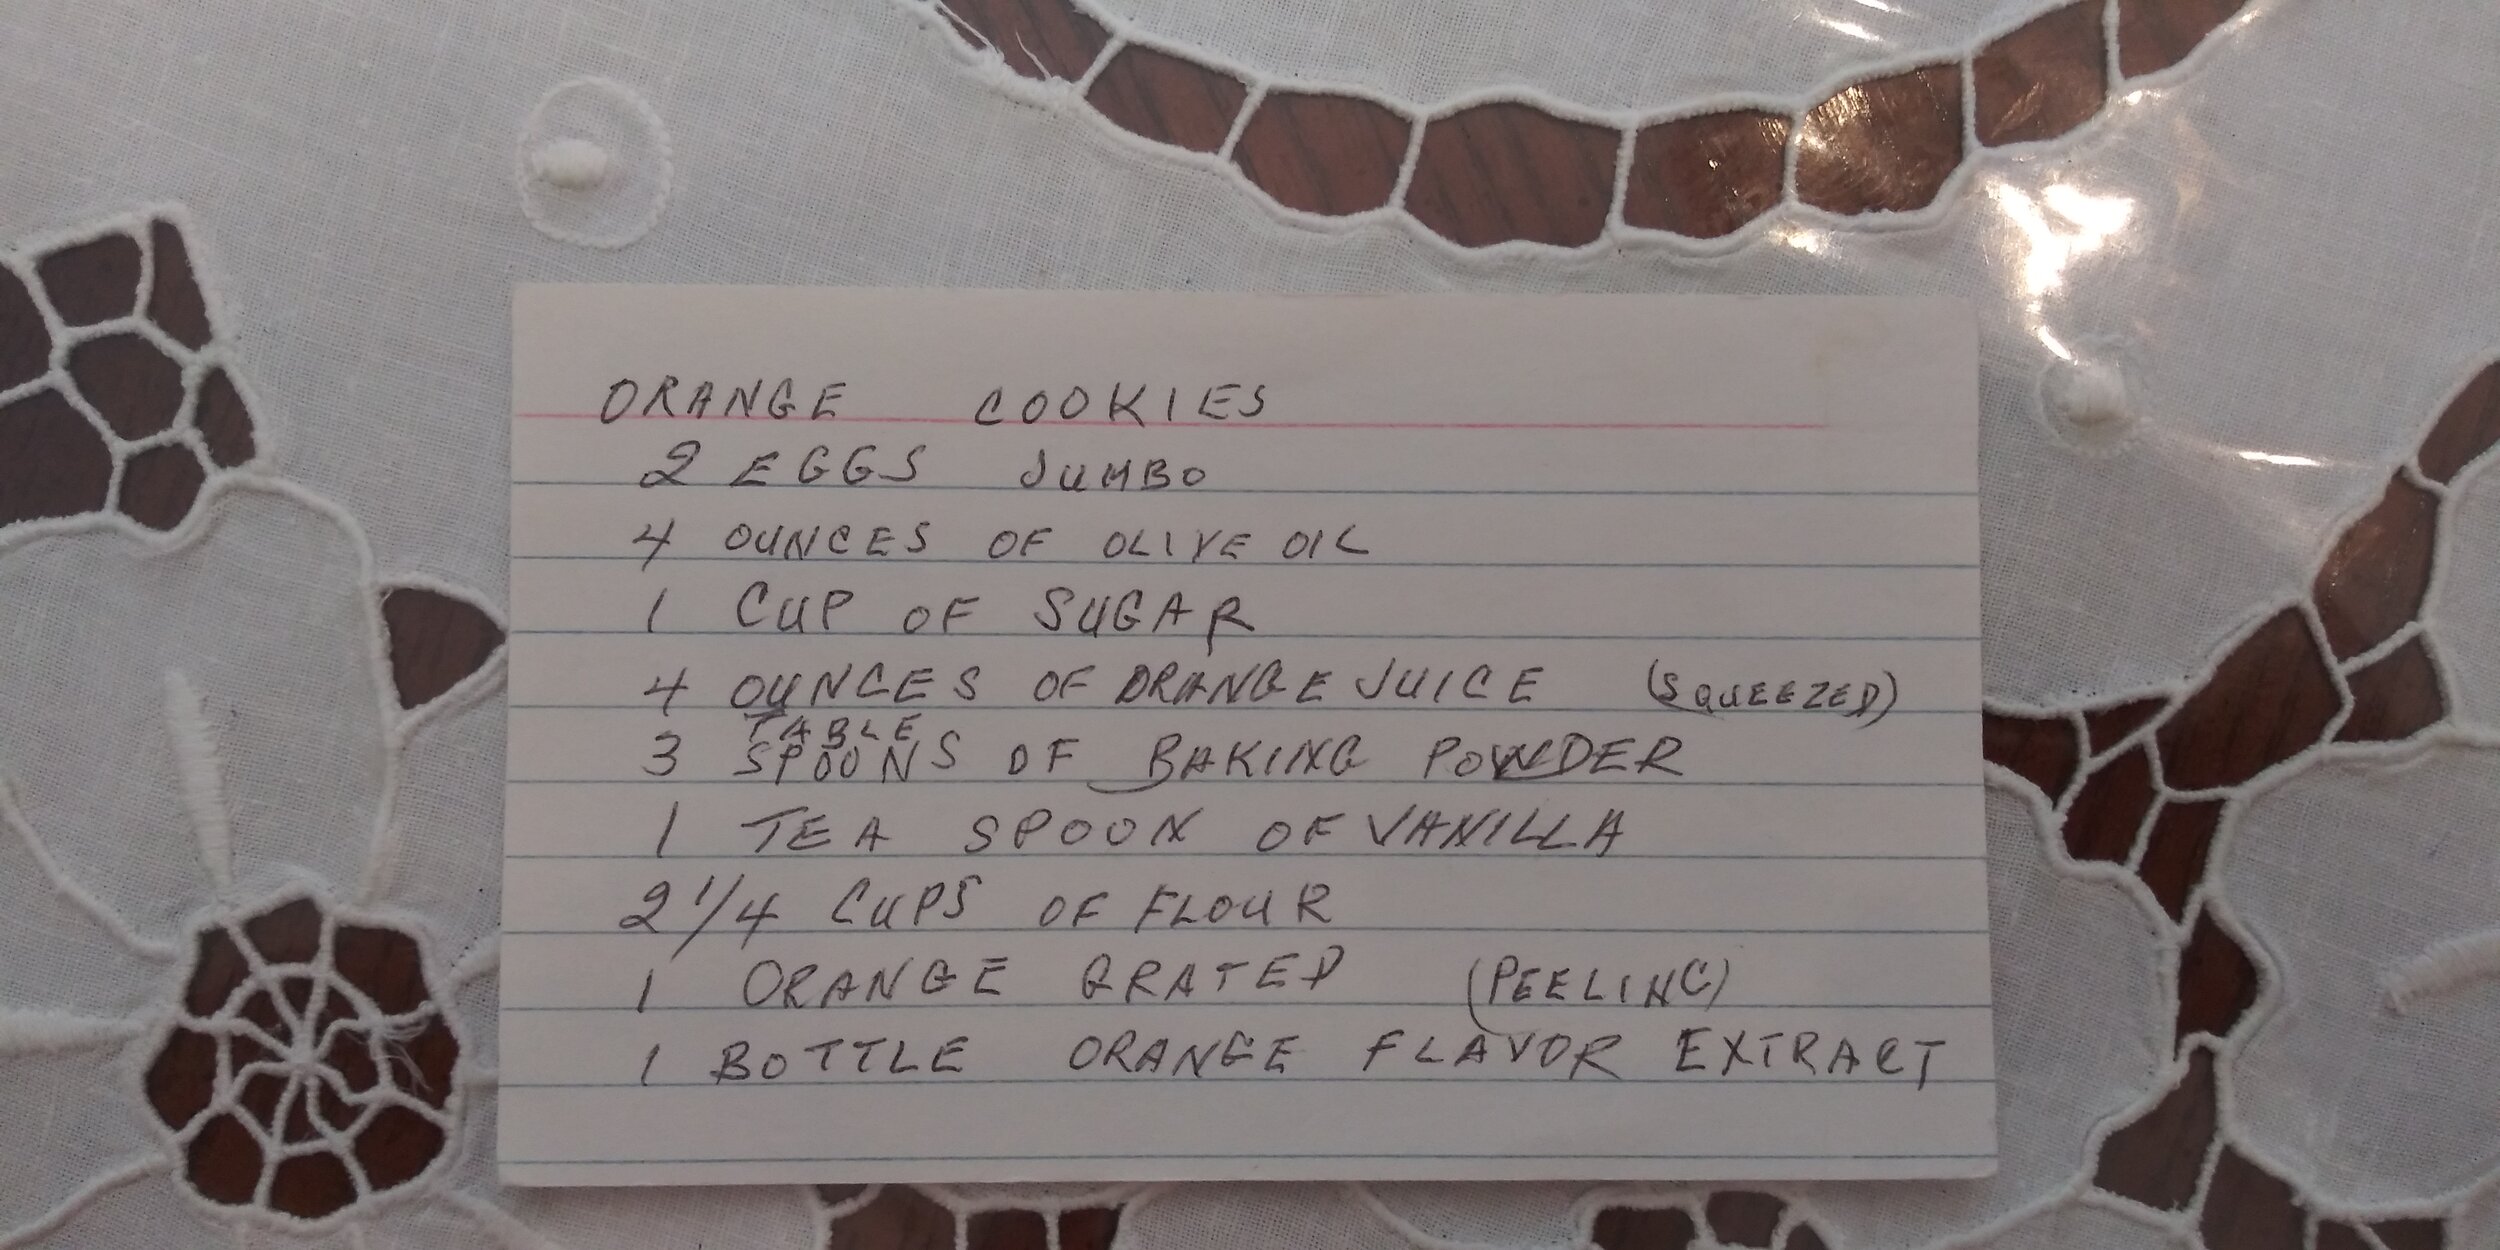 ORANGE COOKIES
2 EGGS JUMBO
4 OUNCES OF OLIVE OIL
1 CUP OF SUGAR
4 OUNCES OF ORANGE JUICE (SQUEEZED)
TABLE
3 SPOONS OF BAKING POWDER
1 TEA SPOON OF VANILLA
2 1/4 CUPS OF FLOUR
1 ORANGE GRATED (PEELING)
1 BOTTLE ORANGE FLAVOR EXTRACT